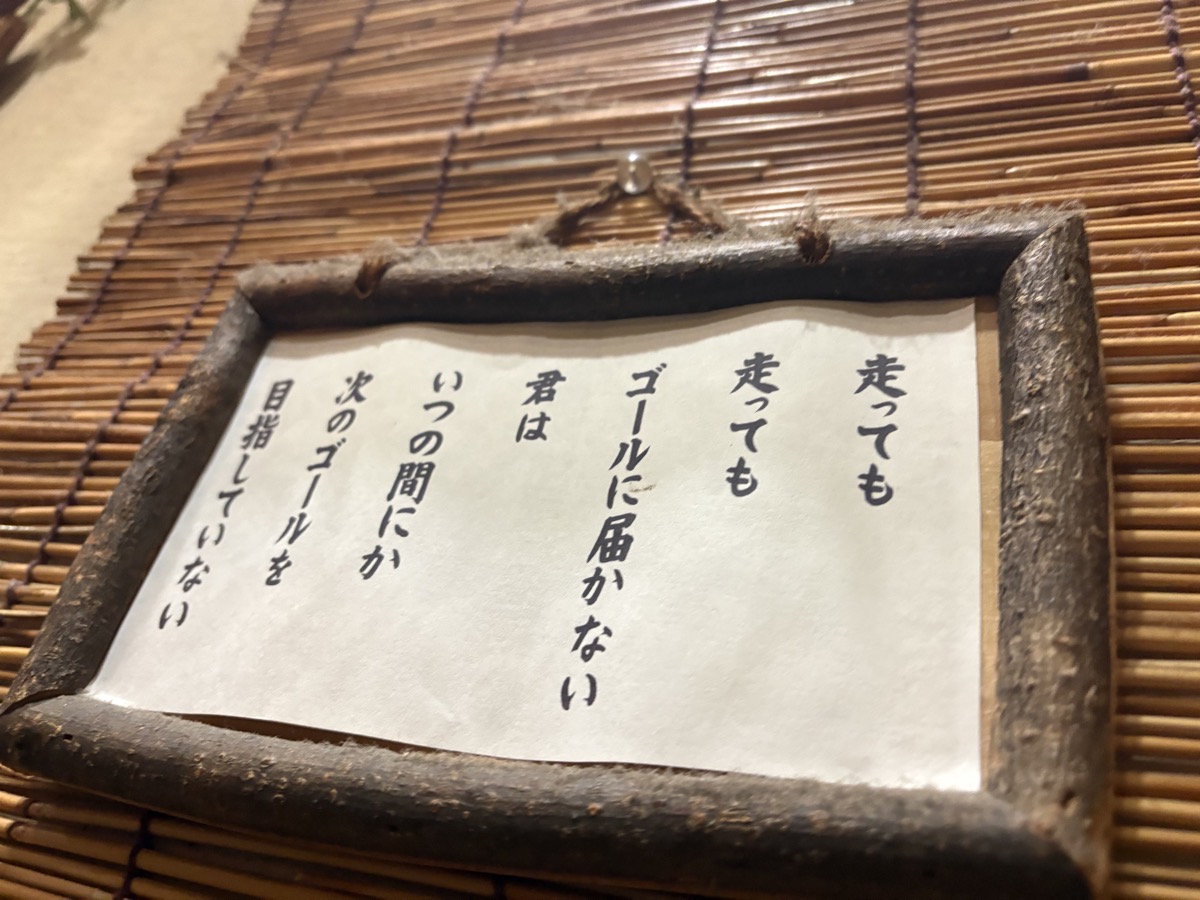 走っても
走っても
ゴールに届かない
君は
いつの間にか
次のゴールを
目指していない